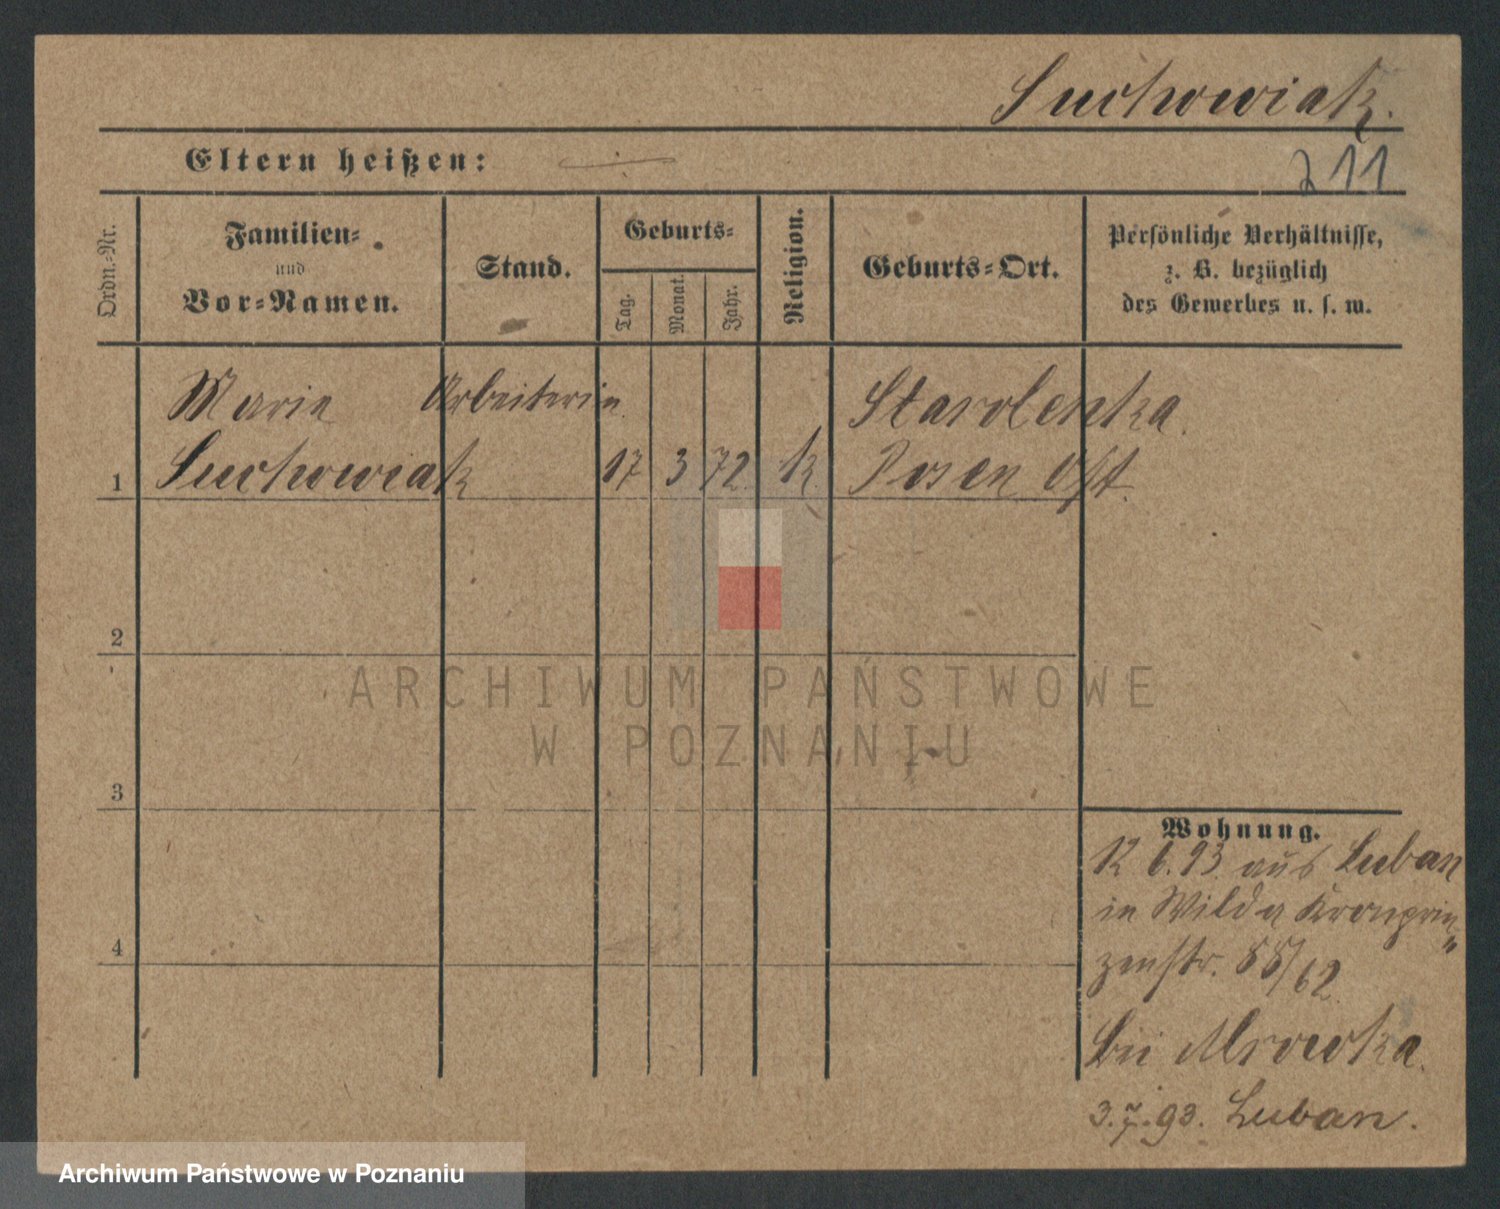 Suchowiak.
Eltern heißen: —
211
Ordn.-Nr.
Familien-
und
Vor-Namen.
Stand.
Geburts-
Tag.
Monat.
Jahr.
Religion.
Geburts-Ort.
Persönliche Verhältnisse,
z. B. bezüglich
des Gewerbes u. s. w.
Marie Arbeiterin Starolenka.
1 Suchowiak 17 3 72 k. Posen Ost.
2
3
4
ARCHIWUM PAŃSTWOWE
W POZNANIU
Wohnung.
12 6. 93. aus Luban
in Wilda Kronprin„
zenstr. 55/62
bei Mrowka.
3.7.93. Luban.
Archiwum Państwowe w Poznaniu